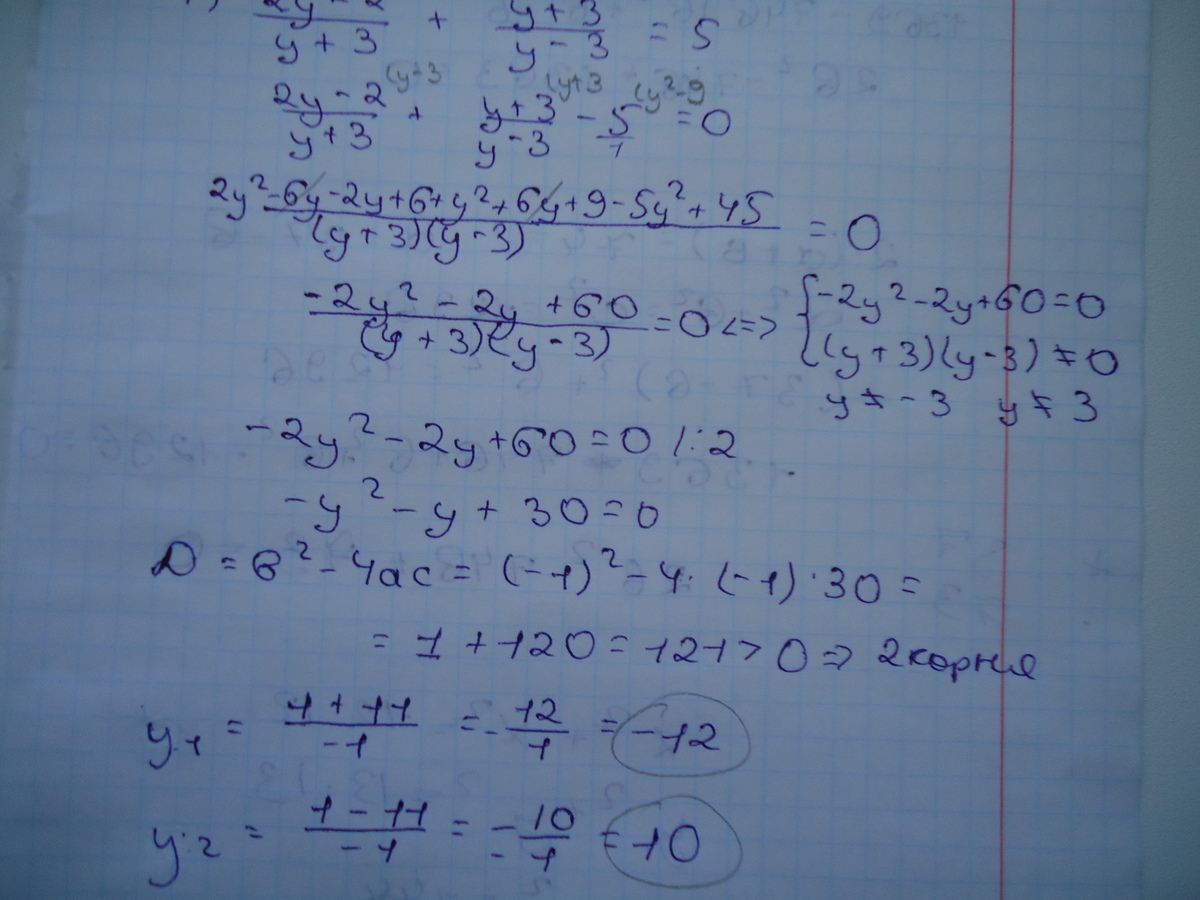 2y-2/y+3 + y+3/y-3 = 5
2y-2/y+3 (y-3 + y+3/y-3 (y+3 - 5/1 (y²-9 = 0
2y²-6y-2y+6+y²+6y+9-5y²+45/(y+3)(y-3) = 0
-2y²-2y+60/(y+3)(y-3) = 0 <=> { -2y²-2y+60=0
(y+3)(y-3) ≠ 0
y ≠ -3 y ≠ 3
-2y²-2y+60=0 |:2
-y²-y+30=0
D = в²-4ac = (-1)²-4·(-1)·30 =
= 1+120=121>0 => 2корня
y1 = 1+11/-1 = -12/1 = -12
y2 = 1-11/-1 = -10/-1 = 10